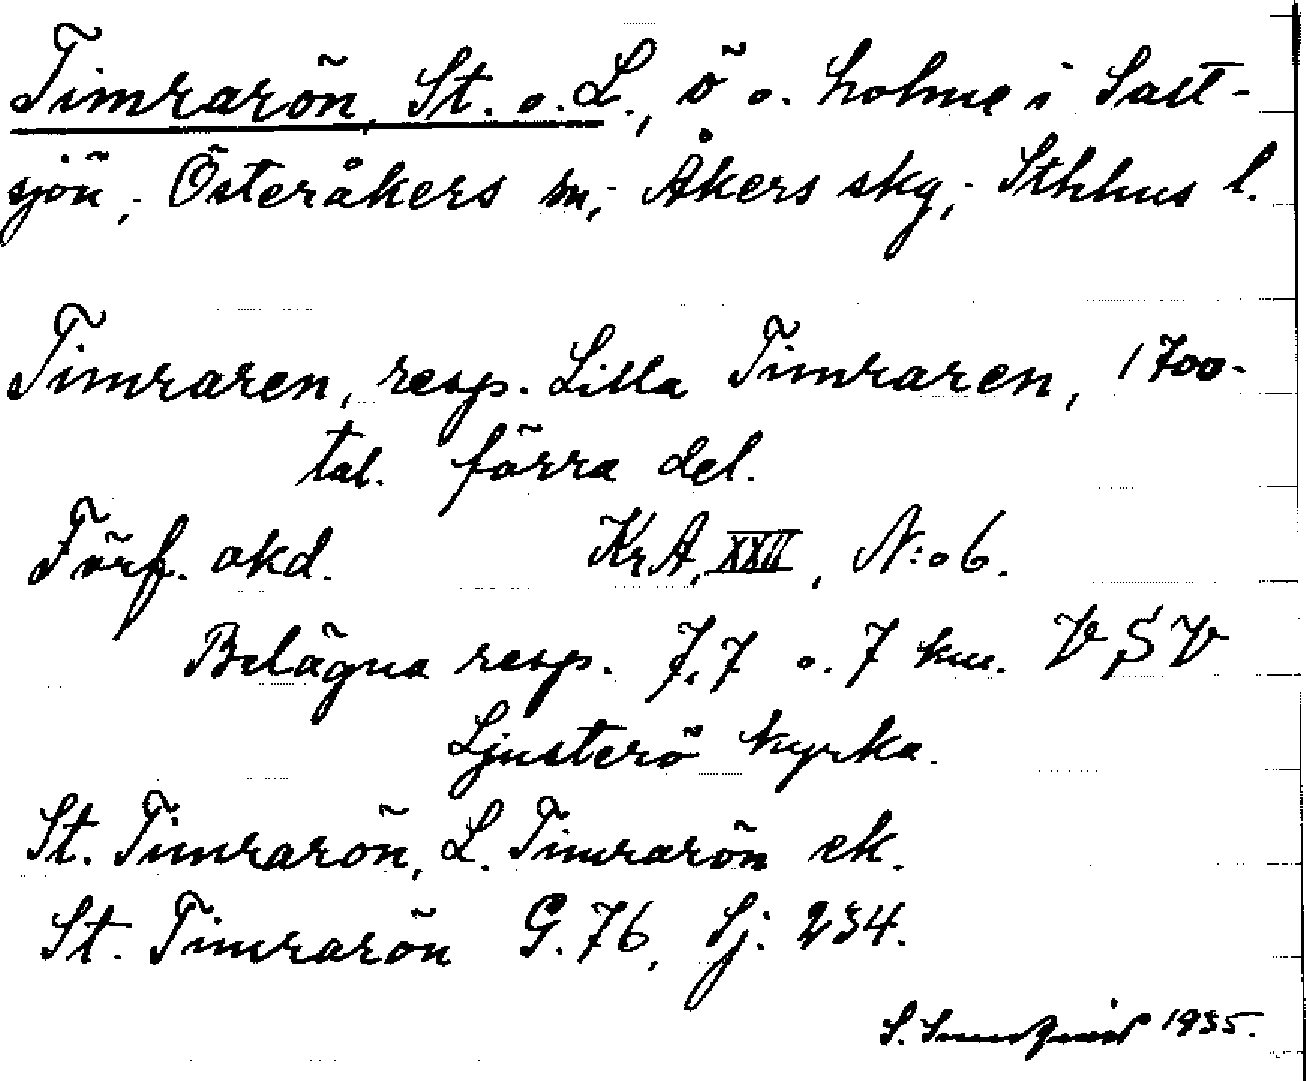 Timrarön, St. o. L., ö o. holme i Salt-
sjön, Österåkers sn, Åkers skg, Sthlms l.
Timraren, resp. Lilla Timraren, 1700-
tal. förra del.
Förf. okd. KrA, XXII, N:o 6.
Belägna resp. 7.7 o. 7 km. VSV
Ljusterö kyrka.
St. Timrarön, L. Timrarön ek.
St. Timrarön G. 76, Sj. 234.
S. 1935.